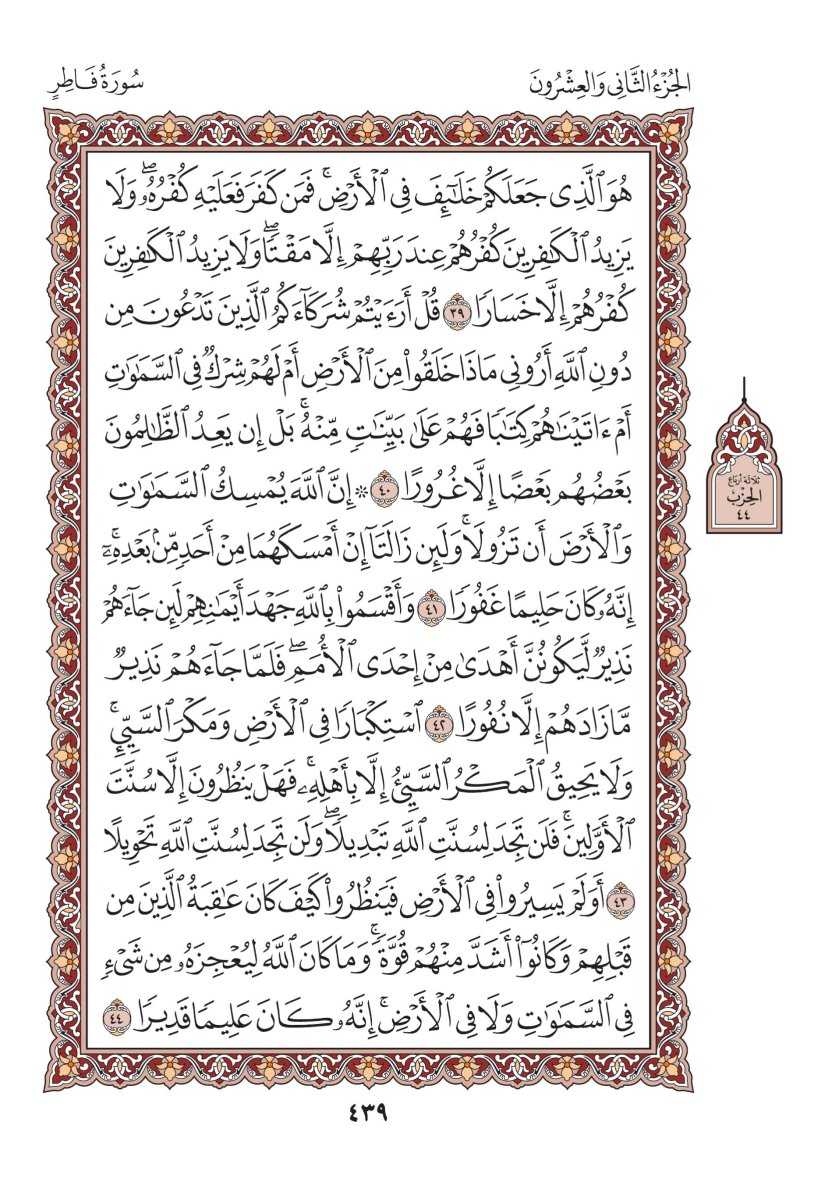 الجُزْءُ الثَّانِى وَالعِشْرُونَ
سُورَةُ فَاطِرٍ
هُوَ ٱلَّذِى جَعَلَكُمْ خَلَٰٓئِفَ فِى ٱلْأَرْضِۚ فَمَن كَفَرَ فَعَلَيْهِ كُفْرُهُۥۖ وَلَا
يَزِيدُ ٱلْكَٰفِرِينَ كُفْرُهُمْ عِندَ رَبِّهِمْ إِلَّا مَقْتًاۖ وَلَا يَزِيدُ ٱلْكَٰفِرِينَ
كُفْرُهُمْ إِلَّا خَسَارًا ٣٩ قُلْ أَرَءَيْتُمْ شُرَكَآءَكُمُ ٱلَّذِينَ تَدْعُونَ مِن
دُونِ ٱللَّهِ أَرُونِى مَاذَا خَلَقُوا۟ مِنَ ٱلْأَرْضِ أَمْ لَهُمْ شِرْكٌ فِى ٱلسَّمَٰوَٰتِ
أَمْ ءَاتَيْنَٰهُمْ كِتَٰبًا فَهُمْ عَلَىٰ بَيِّنَتٍ مِّنْهُۚ بَلْ إِن يَعِدُ ٱلظَّٰلِمُونَ
بَعْضُهُم بَعْضًا إِلَّا غُرُورًا ٤٠ ۞ إِنَّ ٱللَّهَ يُمْسِكُ ٱلسَّمَٰوَٰتِ
وَٱلْأَرْضَ أَن تَزُولَاۚ وَلَئِن زَالَتَآ إِنْ أَمْسَكَهُمَا مِنْ أَحَدٍ مِّنۢ بَعْدِهِۦٓۚ
إِنَّهُۥ كَانَ حَلِيمًا غَفُورًا ٤١ وَأَقْسَمُوا۟ بِٱللَّهِ جَهْدَ أَيْمَٰنِهِمْ لَئِن جَآءَهُمْ
نَذِيرٌ لَّيَكُونُنَّ أَهْدَىٰ مِنْ إِحْدَى ٱلْأُمَمِۖ فَلَمَّا جَآءَهُمْ نَذِيرٌ
مَّا زَادَهُمْ إِلَّا نُفُورًا ٤٢ ٱسْتِكْبَارًا فِى ٱلْأَرْضِ وَمَكْرَ ٱلسَّيِّئِۚ
وَلَا يَحِيقُ ٱلْمَكْرُ ٱلسَّيِّئُ إِلَّا بِأَهْلِهِۦۚ فَهَلْ يَنظُرُونَ إِلَّا سُنَّتَ
ٱلْأَوَّلِينَۚ فَلَن تَجِدَ لِسُنَّتِ ٱللَّهِ تَبْدِيلًاۖ وَلَن تَجِدَ لِسُنَّتِ ٱللَّهِ تَحْوِيلًا
٤٣ أَوَلَمْ يَسِيرُوا۟ فِى ٱلْأَرْضِ فَيَنظُرُوا۟ كَيْفَ كَانَ عَٰقِبَةُ ٱلَّذِينَ مِن
قَبْلِهِمْ وَكَانُوٓا۟ أَشَدَّ مِنْهُمْ قُوَّةًۚ وَمَا كَانَ ٱللَّهُ لِيُعْجِزَهُۥ مِن شَىْءٍ
فِى ٱلسَّمَٰوَٰتِ وَلَا فِى ٱلْأَرْضِۚ إِنَّهُۥ كَانَ عَلِيمًا قَدِيرًا ٤٤
ثلاثة أرباع
الحِزْب
٤٤
٤٣٩